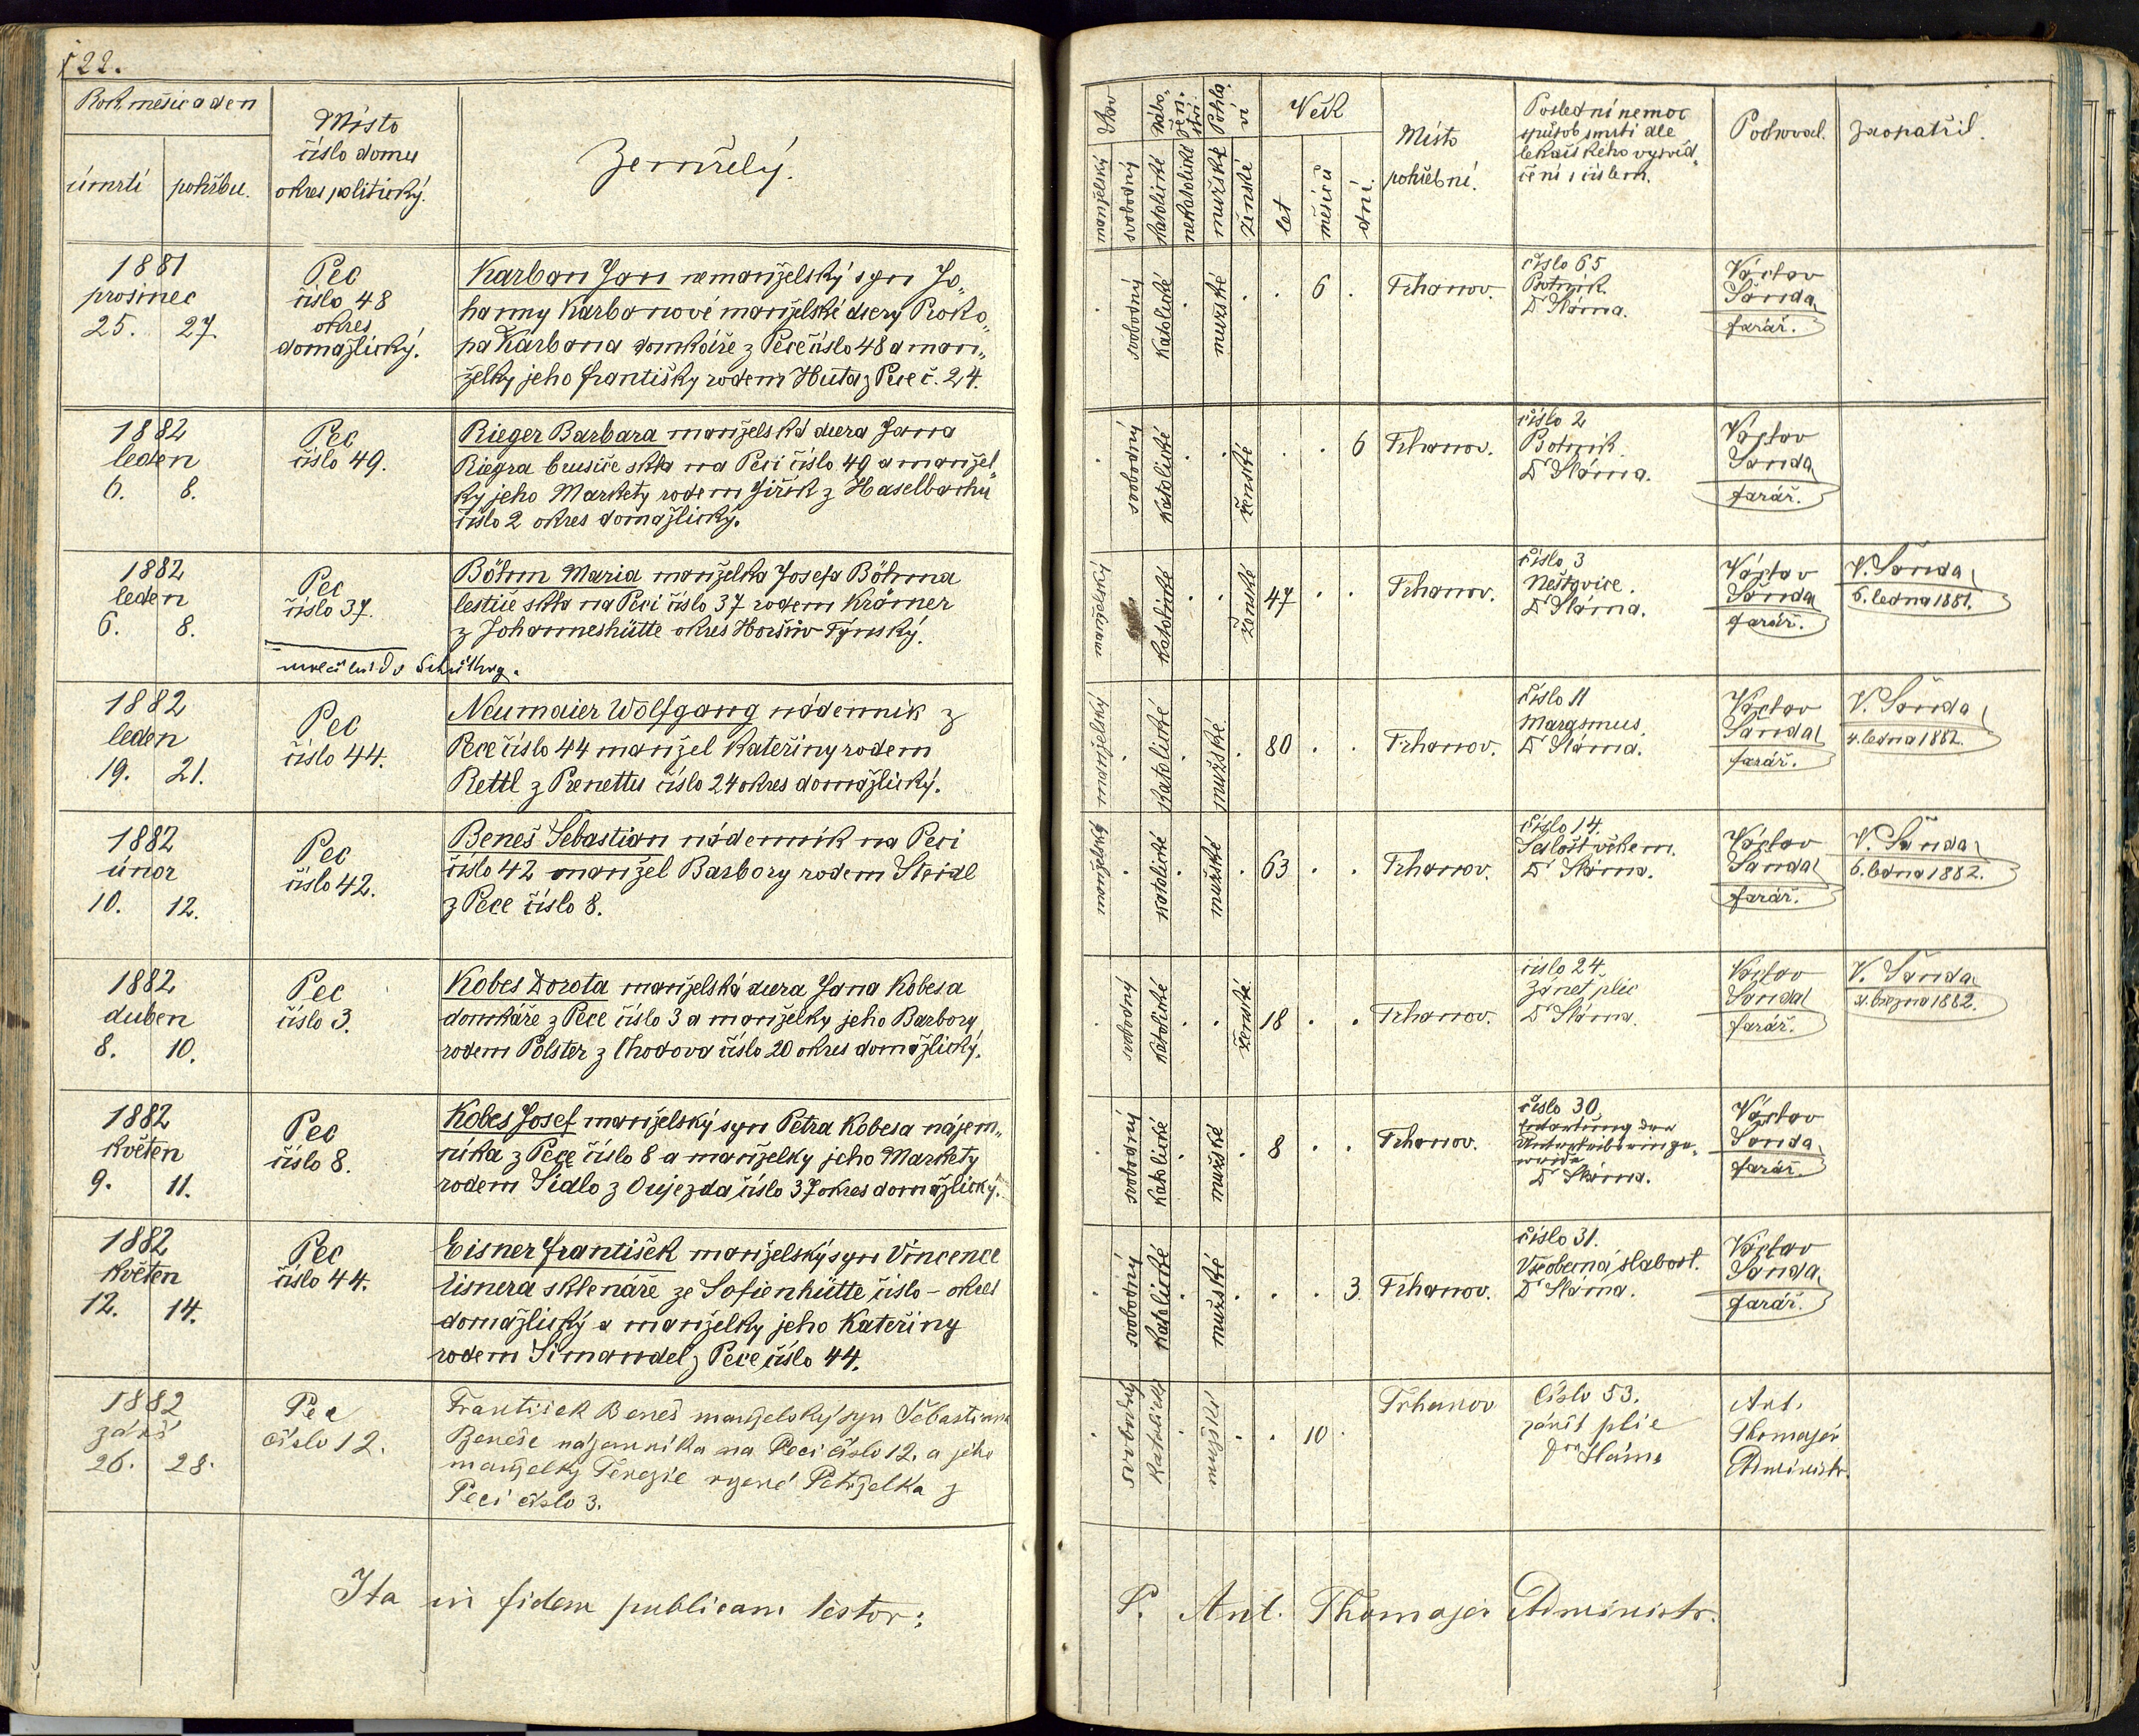 122.
Rok měsíc a den
úmrtí
pohřbu.
Místo
číslo domu
okres politický.
Zemřelý.
Stav
manželský
svobodný
Nábo-
žen-
ství
katolické
nekatolické
Pohla-
ví
mužské
ženské
Věk
let
měsíců
dní.
Místo
pohřební.
Poslední nemoc
spůsob smrti dle
lékařského vysvěd-
čení s číslem.
Pochoval.
Zaopatřil.
1881
prosinec
25. 27.
Pec
číslo 48
okres
domažlický.
Karban Jan nemanželský syn Jo-
hanny Karbanové manželské dcery Proko-
pa Karbana domkáře z Pece číslo 48 a man-
želky jeho Františky rodem Huta z Pece č. 24.
svobodný
katolické
mužské
6
Trhanov.
číslo 65
Psotník.
Dr Sláma.
Václav
Šanda
farář.
1882
leden
6. 8.
Pec
číslo 49.
Rieger Barbara manželská dcera Jana
Riegra brusiče skla na Peci číslo 49 a manžel-
ky jeho Markety rodem Jiřík z Haselbachu
číslo 2 okres domažlický.
svobodný
katolické
ženské
6
Trhanov.
číslo 2
Psotník.
Dr Sláma.
Václav
Šanda
farář.
1882
leden
6. 8.
Pec
číslo 37.
Böhm Maria manželka Josefa Böhma
leštiče skla na Peci číslo 37 rodem Krämer
z Johanneshütte okres Horšův-Týnský.
manželský
katolické
ženské
47
Trhanov.
číslo 3
Neštovice.
Dr Sláma.
Václav
Šanda
farář.
V. Šanda
6. ledna 1881.
1882
leden
19. 21.
Pec
číslo 44.
Neumaier Wolfgang nádenník z
Pece číslo 44 manžel Kateřiny rodem
Rettl z Prenettu číslo 24 okres domažlický.
manželský
katolické
mužské
80
Trhanov.
číslo 11
Marasmus.
Dr Sláma.
Václav
Šanda
farář.
V. Šanda
4. ledna 1882.
1882
únor
10. 12.
Pec
číslo 42.
Beneš Šebastian nádenník na Peci
číslo 42 manžel Barbory rodem Steidl
z Pece číslo 8.
manželský
katolické
mužské
63
Trhanov.
číslo 14.
Sešlost věkem.
Dr Sláma.
Václav
Šanda
farář.
V. Šanda
6. ledna 1882.
1882
duben
8. 10.
Pec
číslo 3.
Kobes Dorota manželská dcera Jana Kobesa
domkáře z Pece číslo 3 a manželky jeho Barbory
rodem Polster z Chodova číslo 20 okres domažlický.
svobodný
katolické
ženské
18
Trhanov.
číslo 24.
Zánět plic
Dr Sláma.
Václav
Šanda
farář.
V. Šanda
31. března 1882.
1882
květen
9. 11.
Pec
číslo 8.
Kobes Josef manželský syn Petra Kobesa nájem-
níka z Pece číslo 8 a manželky jeho Markety
rodem Sidlo z Oujezda číslo 37 okres domažlický.
svobodný
katolické
mužské
8
Trhanov.
číslo 30
Entartung der
Unterleibseinge-
weide
Dr Sláma.
Václav
Šanda
farář.
1882
květen
12. 14.
Pec
číslo 44.
Eisner František manželský syn Vincence
Eisnera sklenáře ze Sofienhütte číslo – okres
domažlický a manželky jeho Kateřiny
rodem Simandel z Pece číslo 44.
svobodný
katolické
mužské
3.
Trhanov.
číslo 31.
Všeobecná slabost.
Dr Sláma.
Václav
Šanda
farář.
1882
září
26. 28.
Pec
číslo 12.
František Beneš manželský syn Šebastiana
Beneše nájemníka na Peci číslo 12. a jeho
manželky Terezie rozené Petrželka z
Peci číslo 3.
svobodný
katolické
mužské
10
Trhanov
Číslo 53.
zánět plic
Dra Sláma
Ant.
Thomajer
Administr.
Ita in fidem publicam testor:
P. Ant. Thomajer Administr.